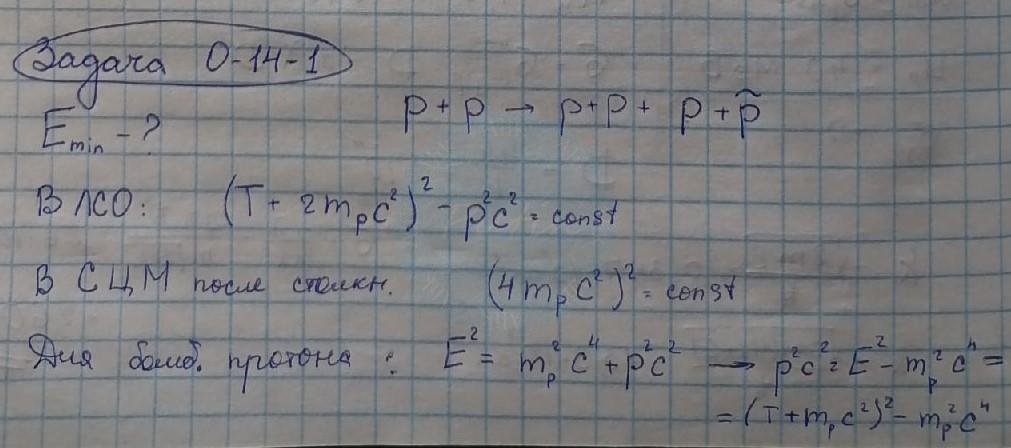 Задача 0-14-1
E_min - ?
p + p → p + p + p + p̃
В ЛСО: (T + 2m_p c²)² - p²c² = const
В СЦМ после столкн. (4m_p c²)² = const
Для бомб. протона: E² = m_p² c⁴ + p²c² → p²c² = E² - m_p² c⁴ =
= (T + m_p c²)² - m_p² c⁴